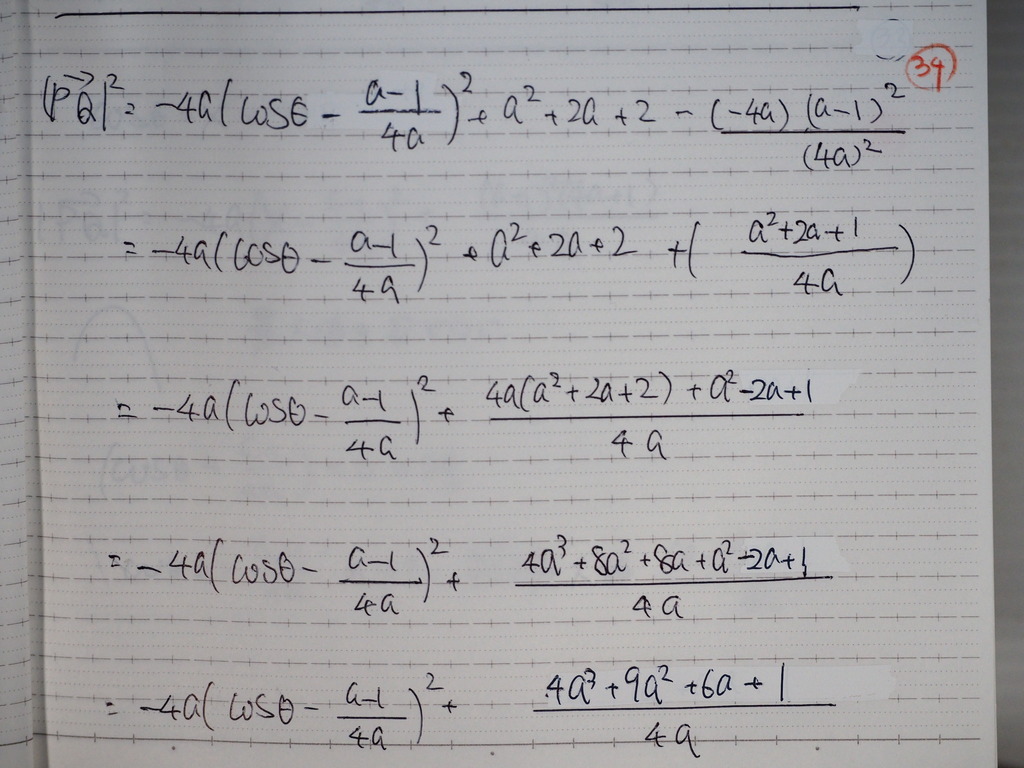 34
|PQ→|² = -4a(cosθ - (a-1)/(4a))² + a² + 2a + 2 - ((-4a)(a-1)²)/((4a)²)
= -4a(cosθ - (a-1)/(4a))² + a² + 2a + 2 + ((a²+2a+1)/(4a))
= -4a(cosθ - (a-1)/(4a))² + (4a(a²+2a+2)+a²-2a+1)/(4a)
= -4a(cosθ - (a-1)/(4a))² + (4a³+8a²+8a+a²-2a+1)/(4a)
= -4a(cosθ - (a-1)/(4a))² + (4a³+9a²+6a+1)/(4a)